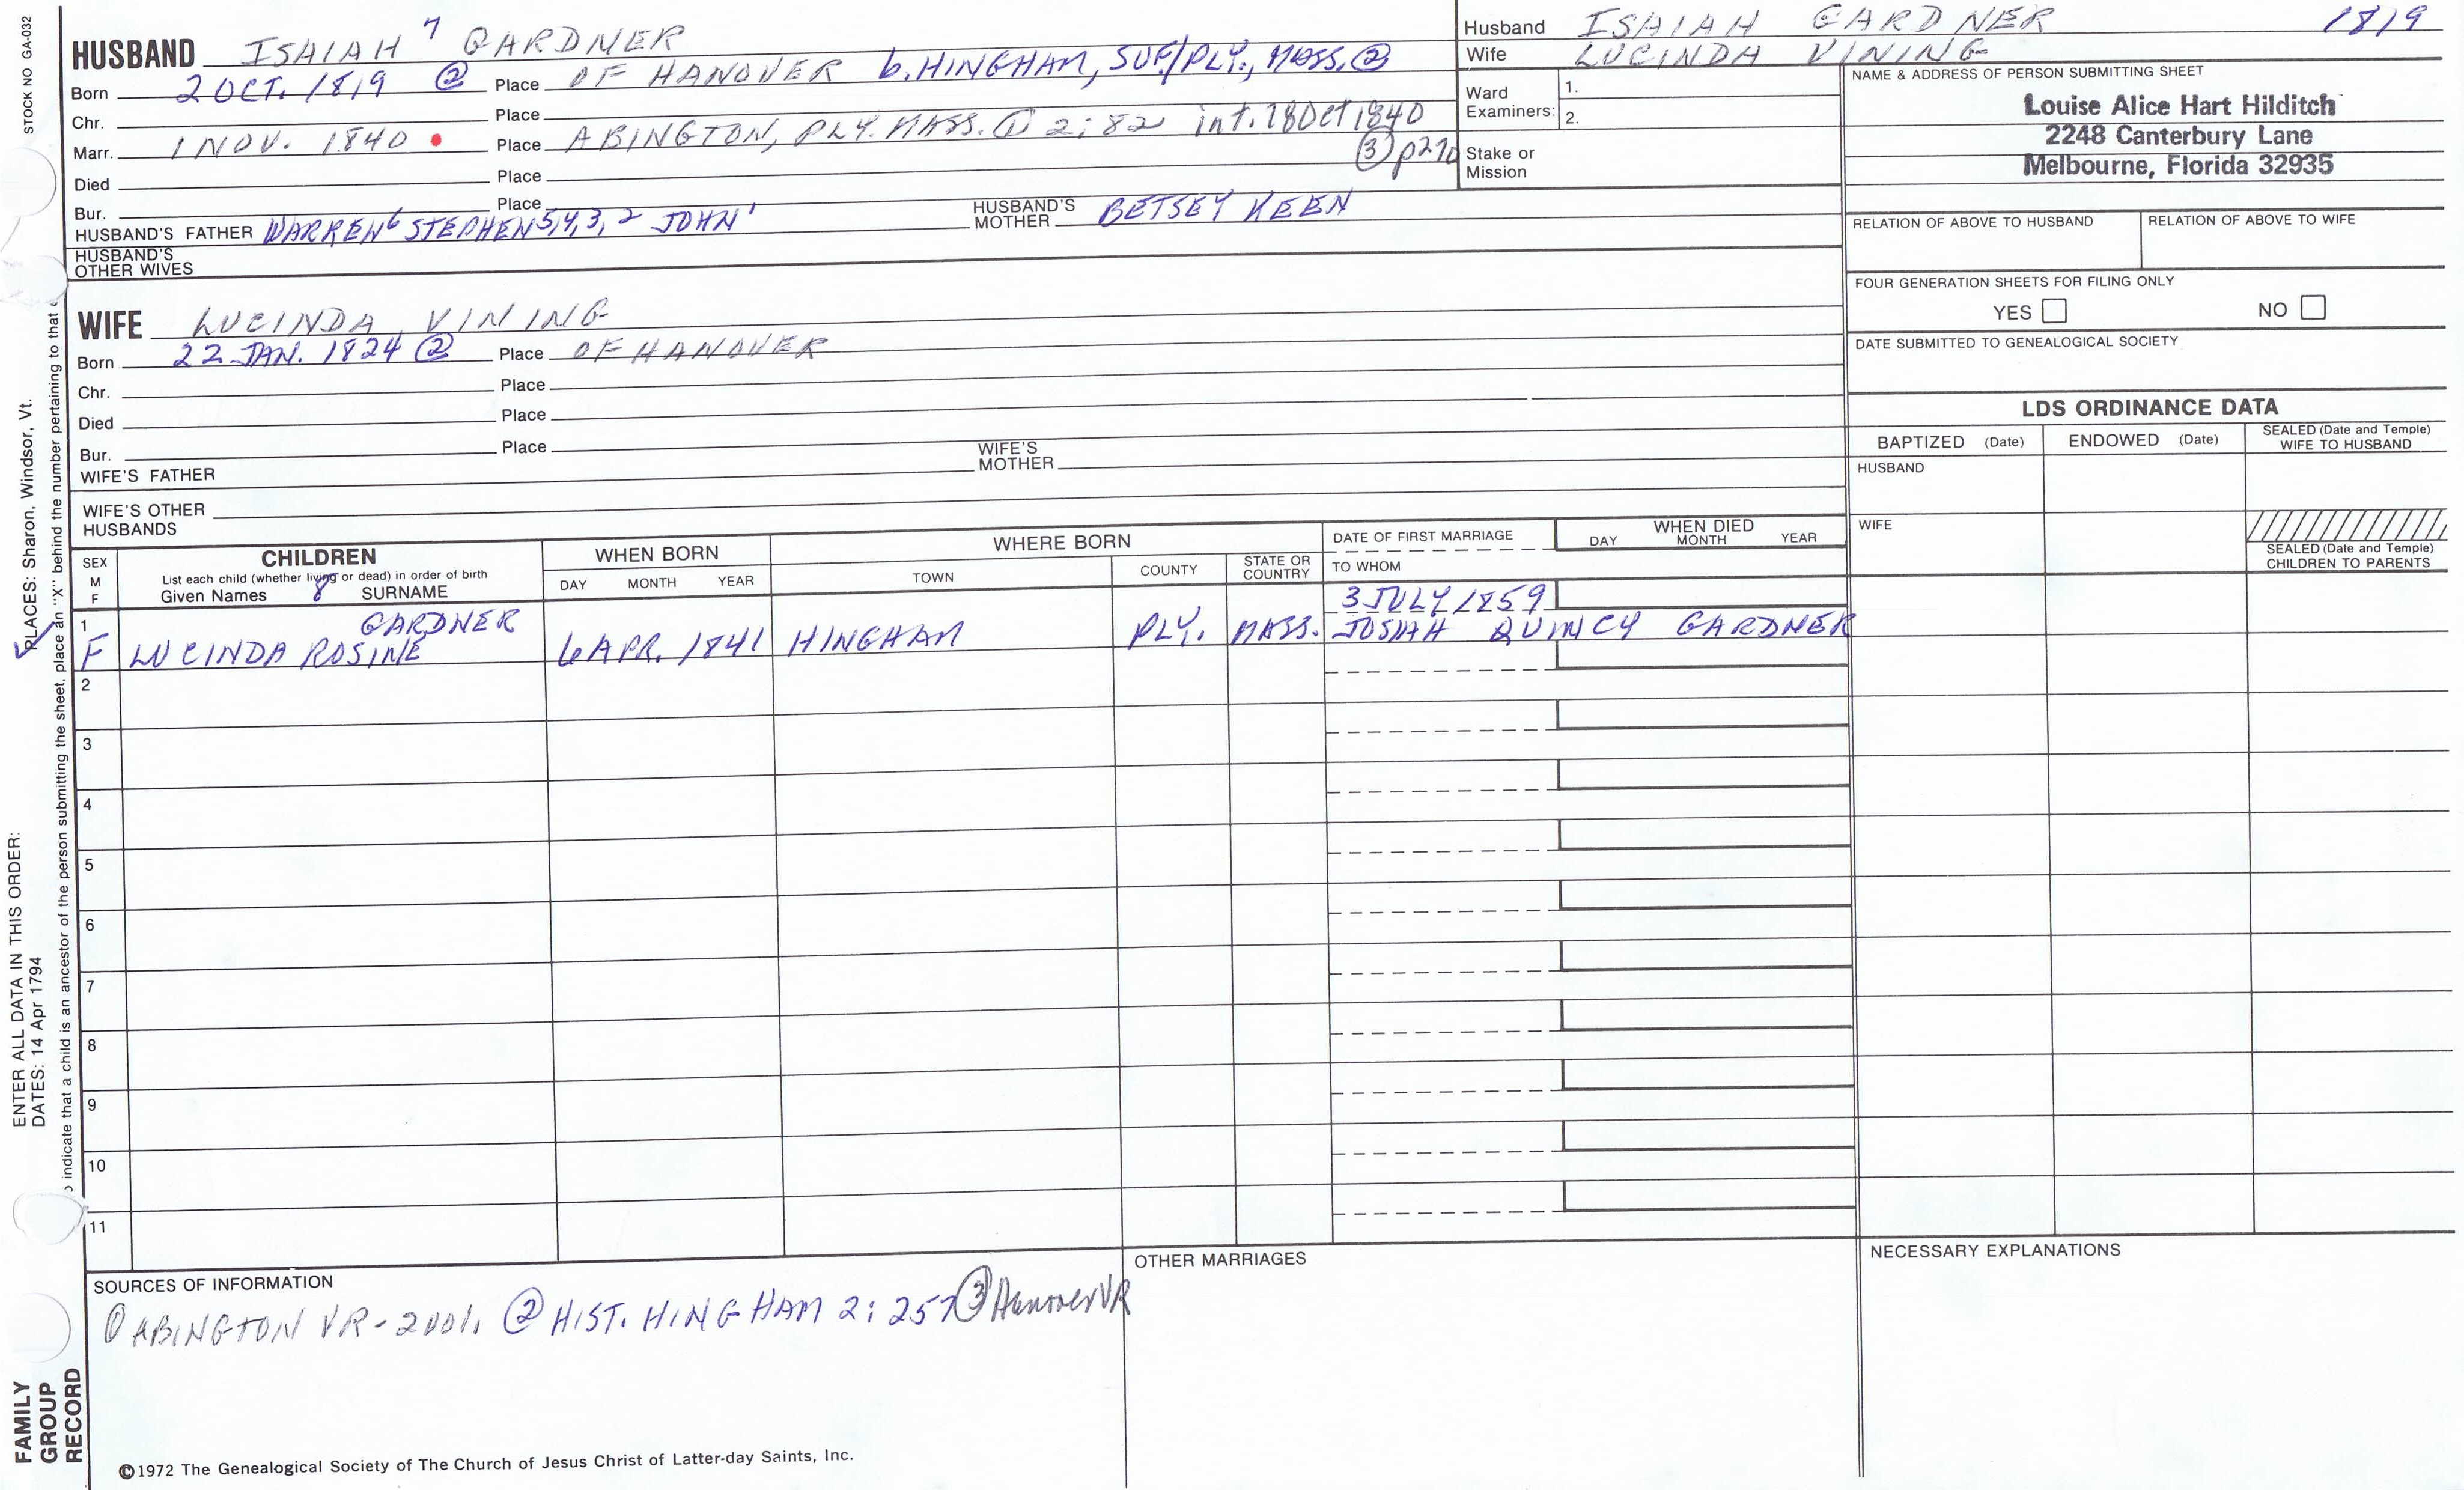 STOCK NO GA-032
HUSBAND ISAIAH 7 GARDNER
Born 2 OCT. 1819 ② Place OF HANOVER b. HINGHAM, SUF/PLY., MASS. ②
Chr. Place
Marr. 1 NOV. 1840 Place ABINGTON, PLY. MASS. ① 2:82 int. 18 Oct 1840
③ p270
Died Place
Bur. Place
HUSBAND'S FATHER WARREN6 STEPHEN5,4,3,2 JOHN1 HUSBAND'S MOTHER BETSEY KEEN
HUSBAND'S OTHER WIVES
Husband ISAIAH GARDNER 1819
Wife LUCINDA VINING
Ward Examiners: 1.
2.
Stake or Mission
NAME & ADDRESS OF PERSON SUBMITTING SHEET
Louise Alice Hart Hilditch
2248 Canterbury Lane
Melbourne, Florida 32935
RELATION OF ABOVE TO HUSBAND RELATION OF ABOVE TO WIFE
FOUR GENERATION SHEETS FOR FILING ONLY
YES NO
DATE SUBMITTED TO GENEALOGICAL SOCIETY
WIFE LUCINDA VINING
Born 22 JAN. 1824 ② Place OF HANOVER
Chr. Place
Died Place
Bur. Place
WIFE'S FATHER WIFE'S MOTHER
WIFE'S OTHER HUSBANDS
LDS ORDINANCE DATA
BAPTIZED (Date) ENDOWED (Date) SEALED (Date and Temple) WIFE TO HUSBAND
HUSBAND
WIFE
SEALED (Date and Temple) CHILDREN TO PARENTS
SEX M F
CHILDREN
List each child (whether living or dead) in order of birth
Given Names 8 SURNAME
WHEN BORN
DAY MONTH YEAR
WHERE BORN
TOWN COUNTY STATE OR COUNTRY
DATE OF FIRST MARRIAGE
TO WHOM
WHEN DIED
DAY MONTH YEAR
1 GARDNER 3 JULY 1859
F LUCINDA ROSINE 6 APR. 1841 HINGHAM PLY. MASS. JOSIAH QUINCY GARDNER
2
3
4
5
6
7
8
9
10
11
SOURCES OF INFORMATION
① ABINGTON VR - 2001. ② HIST. HINGHAM 2:257 ③ Hanover VR
OTHER MARRIAGES
NECESSARY EXPLANATIONS
©1972 The Genealogical Society of The Church of Jesus Christ of Latter-day Saints, Inc.
FAMILY GROUP RECORD
ENTER ALL DATA IN THIS ORDER:
DATES: 14 Apr 1794
PLACES: Sharon, Windsor, Vt.
indicate that a child is an ancestor of the person submitting the sheet, place an "X" behind the number pertaining to that